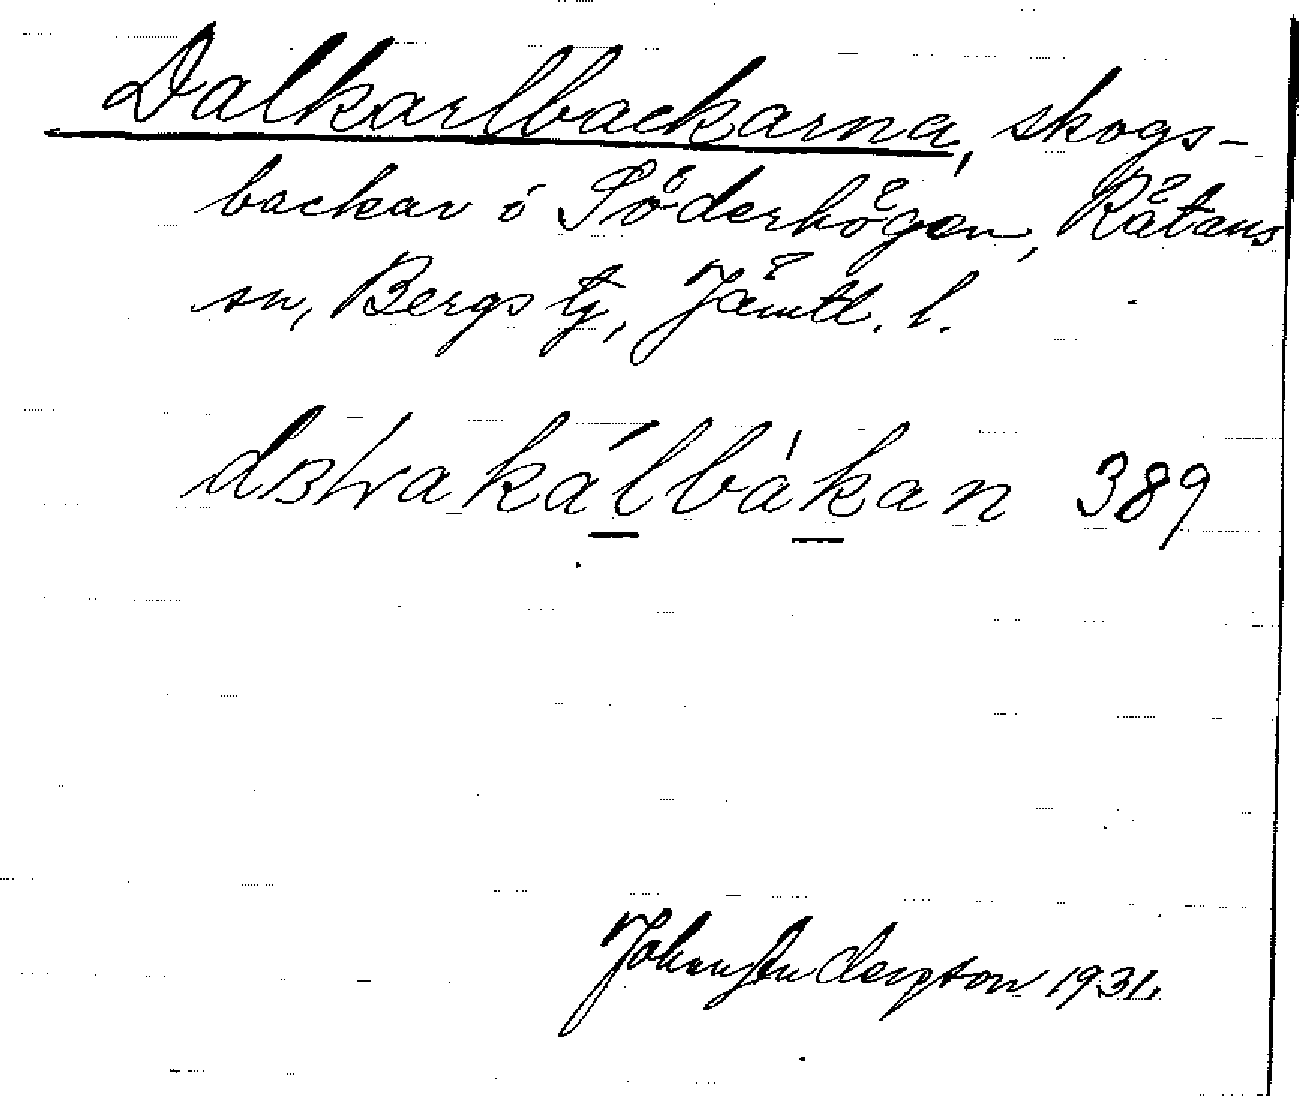 Dalkarlbackarna, skogs-
backar i Söderhögen, Rätans
sn, Bergs tg, Jämtl. l.
kálbákan 389
Johan Anderson 1931.